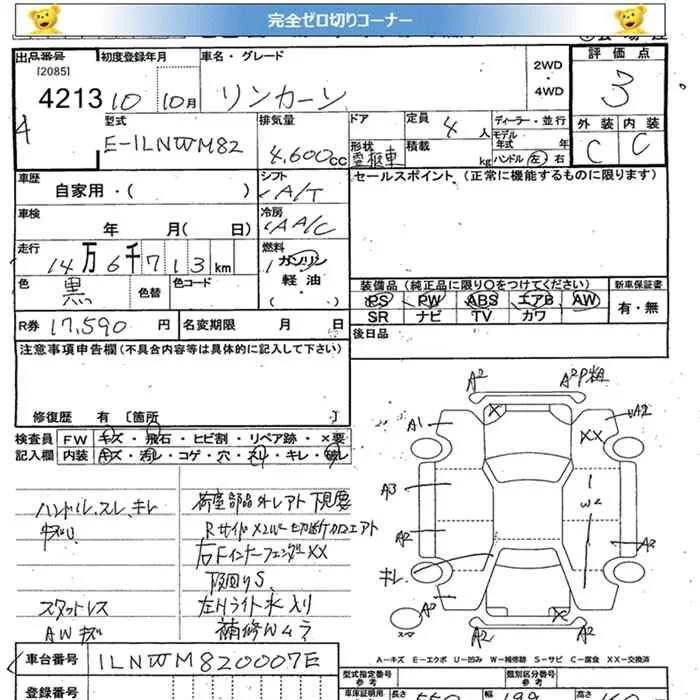 完全ゼロ切りコーナー
出品番号 初度登録年月 車名・グレード 2WD・4WD 評価点
[2085]
4213 10 10月 リンカーン 3
4
型式 排気量 ドア 定員 4人 ディーラー・並行
E-1LNWM82 4,600cc 形状 霊柩車 積載 kg モデル年式 年 ハンドル 左 右
外装 内装
C C
車歴 シフト セールスポイント (正常に機能するものに限ります)
自家用・( ) A/T
車検 冷房
年 月( 日) A/C
走行 燃料
14万6千713km ガソリン
軽油
・( )
色 黒 色替 色コード
装備品 (純正品に限り○をつけてください) 新車保証書
PS PW ABS エアB AW 有・無
SR ナビ TV カワ
R券 17,590円 名変期限 月 日 後日品
注意事項申告欄(不具合内容等は具体的に記入して下さい)
修復歴 有 〔箇所 〕
検査員 FW キズ・飛石・ヒビ割・リペア跡・×要
記入欄 内装 キズ・汚レ・コゲ・穴・スレ・キレ・破レ
ハンドル、スレ、キレ
スタットレス
AWキズ
荷室部品外レアト 下見要
Rサイド×2W 切断加工アト
右Fインナーフェンダー××
下回りS
左Hライト水入り
補修Wムラ
A2 A2P粗
A1 × ×× A2
A3 W2
A2 A2
キレ
A2 ×
スマ A2 A2
A-キズ E-エクボ U-凹み W-補修跡 S-サビ C-腐食 XX-交換済
車台番号 1LNWM820007E
型式指定番号 類別区分番号
登録番号 長さ 550 幅 199 高さ 160